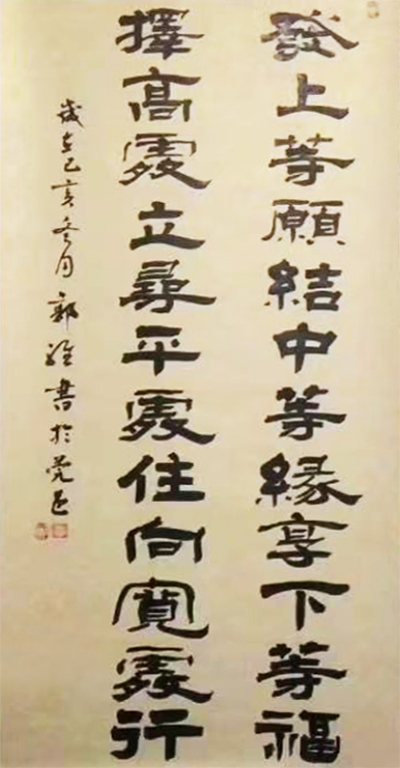 發上等願結中等緣享下等福
擇高處立尋平處住向寬處行
歲在己亥冬月郭強書於莞邑